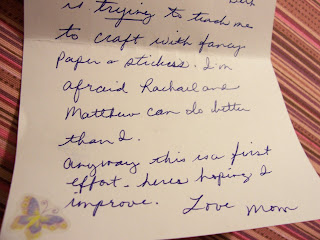 is trying to teach me
to craft with fancy
Paper or stickers. I'm
afraid Rachail and
Matthew can do better
than I.
anyway this is a first
effort - heres hoping I
improve.
Love mom